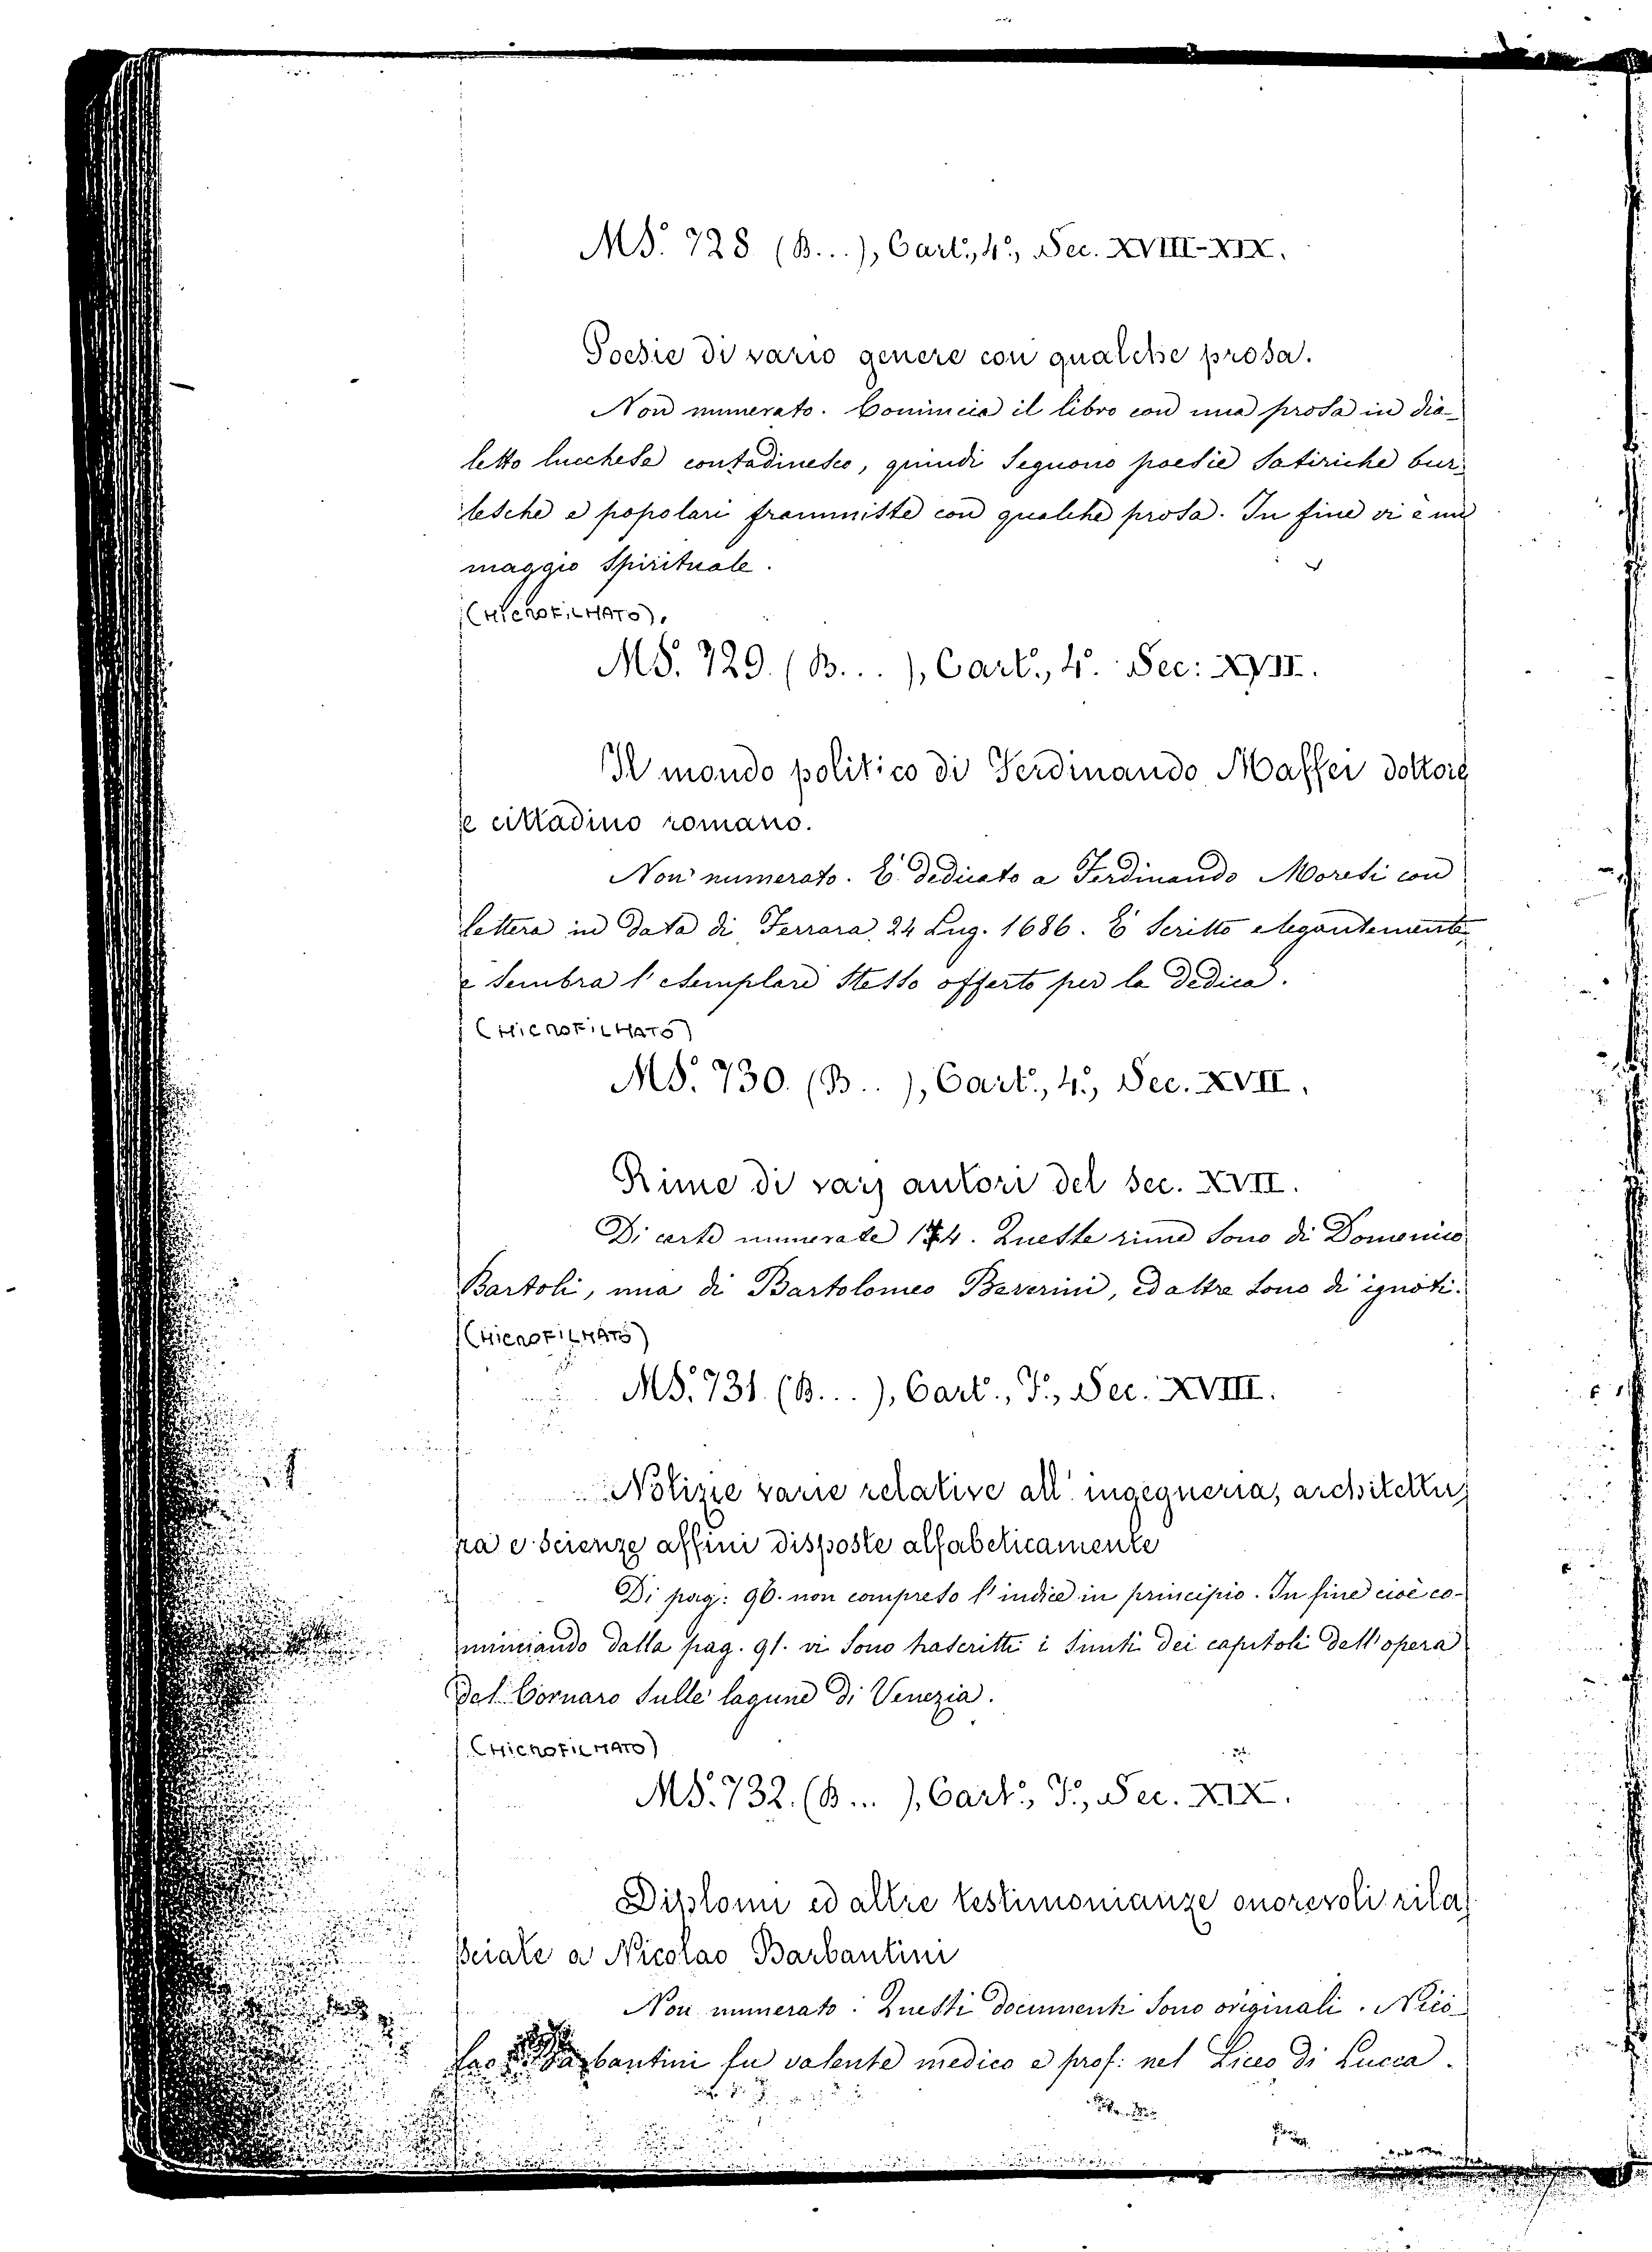 MS. 728 (B...), Cart., 4°, Sec. XVIII-XIX.
Poesie di vario genere con qualche prosa.
Non numerato. Comincia il libro con una prosa in dia-
letto lucchese contadinesco, quindi seguono poesie satiriche bur-
lesche e popolari frammiste con qualche prosa. In fine vi è un
maggio spirituale.
(MICROFILMATO).
MS. 729. (B...), Cart., 4°. Sec: XVII.
Il mondo politico di Ferdinando Maffei dottore
e cittadino romano.
Non numerato. È dedicato a Ferdinando Moresi con
lettera in data di Ferrara, 24 Lug. 1686. È scritto elegantemente
e sembra l'esemplare stesso offerto per la dedica.
(MICROFILMATO)
MS. 730. (B..), Cart., 4°, Sec. XVII.
Rime di varj autori del sec. XVII.
Di carte numerate 174. Queste rime sono di Domenico
Bartoli, una di Bartolomeo Beverini, ed altre sono di ignoti.
(MICROFILMATO)
MS. 731. (B...), Cart., F°, Sec. XVIII.
Notizie varie relative all'ingegneria, architettu-
ra e scienze affini disposte alfabeticamente
Di pag: 96. non compreso l'indice in principio. In fine cioè co-
minciando dalla pag. 91. vi sono trascritti i sunti dei capitoli dell'opera
del Cornaro sulle lagune di Venezia.
(MICROFILMATO)
MS. 732. (B...), Cart., F°, Sec. XIX.
Diplomi ed altre testimonianze onorevoli rila-
sciate a Nicolao Barbantini
Non numerato. Questi documenti sono originali. Nico-
lao Barbantini fu valente medico e prof: nel Liceo di Lucca.